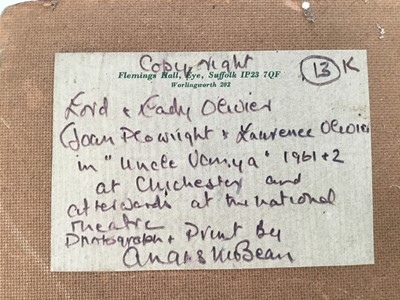 Copyright
Flemings Hall, Eye, Suffolk IP23 7QF
Worlingworth 202
13 K
Lord & Lady Olivier
(Joan Plowright & Laurence Olivier
in "Uncle Vanya" 1961+2
at Chichester and
afterwards at the national
Theatre
Photograph + Print by
Angus McBean